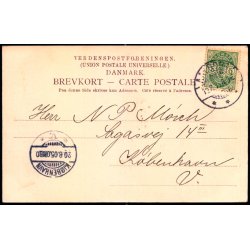 VERDENSPOSTFORENINGEN.
(UNION POSTALE UNIVERSELLE)
DANMARK
BREVKORT – CARTE POSTALE
Paa denne Side skrives kun Adressen. Côté réservé à l'adresse.
Herr N P Mörch
Sagasvej 14 III
København
V.
KJØBENHAVN